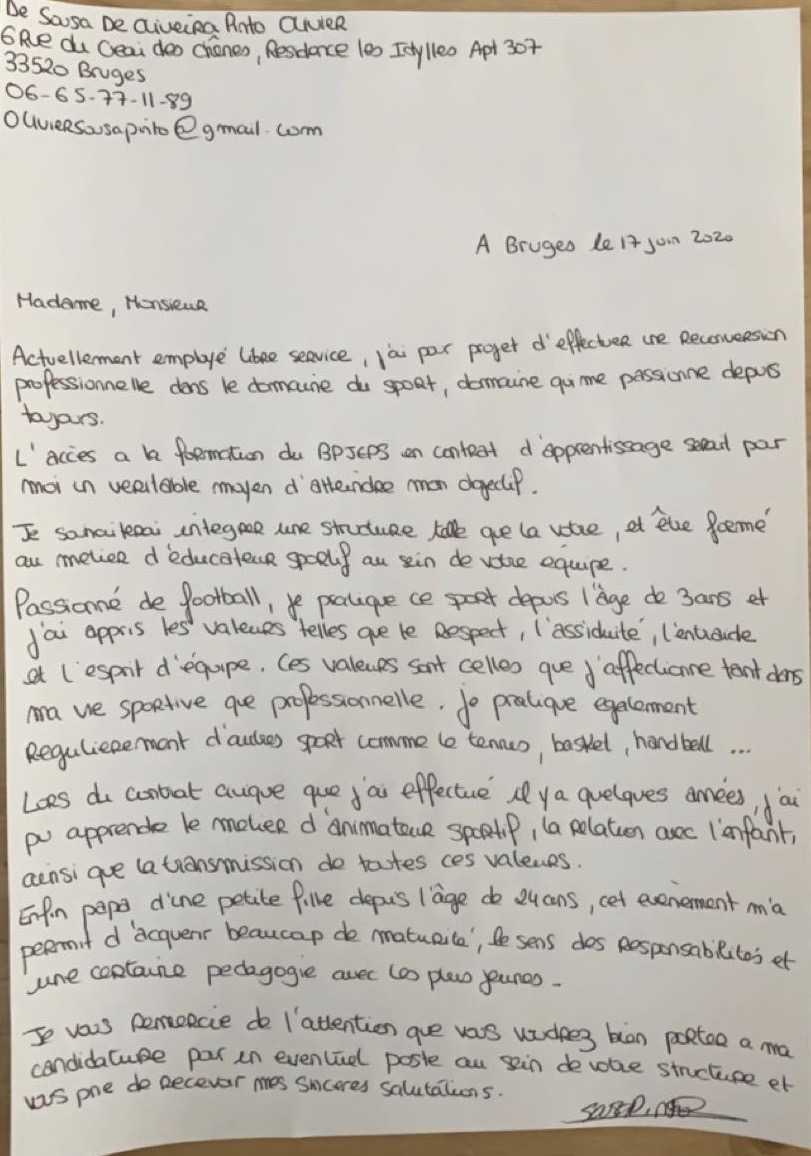 De Sousa De Oliveira Pinto Olivier
6 Rue du Creai des chênes, Residance les Idylles Apt 307
33520 Bruges
06-65-77-11-89
Oliviersousapinto@gmail.com
A Bruges le 17 juin 2020
Madame, Monsieur
Actuellement employé libre service, j'ai pour projet d'effectuer une Reconversion
professionnelle dans le domaine du sport, domaine qui me passionne depuis
toujours.
L'accès a la formation du BPJEPS en contrat d'apprentissage serait pour
moi un veritable moyen d'atteindre mon objectif.
Je souhaiterai integrer une structure telle que la votre, et être formé
au metier d'éducateur sportif au sein de votre equipe.
Passionné de football, je pratique ce sport depuis l'âge de 3ans et
j'ai appris les valeurs telles que le Respect, l'assiduité, l'entraide
et l'esprit d'équipe. Ces valeurs sont celles que j'affectionne tant dans
ma vie sportive que professionnelle. je pratique egalement
Regulierement d'autres sport comme le tennis, basket, handball ...
Lors du contrat civique que j'ai effectué il y a quelques années, j'ai
pu apprendre le metier d'animateur sportif, la relation avec l'enfant,
ainsi que la transmission de toutes ces valeurs.
Enfin papa d'une petite fille depuis l'âge de 24ans, cet evenement m'a
permit d'acquerir beaucoup de maturité, le sens des Responsabilités et
une certaine pedagogie avec les plus jeunes.
Je vous remercie de l'attention que vous voudrez bien porter a ma
candidature pour un eventuel poste au sein de votre structure et
vous prie de recevoir mes sinceres salutations.